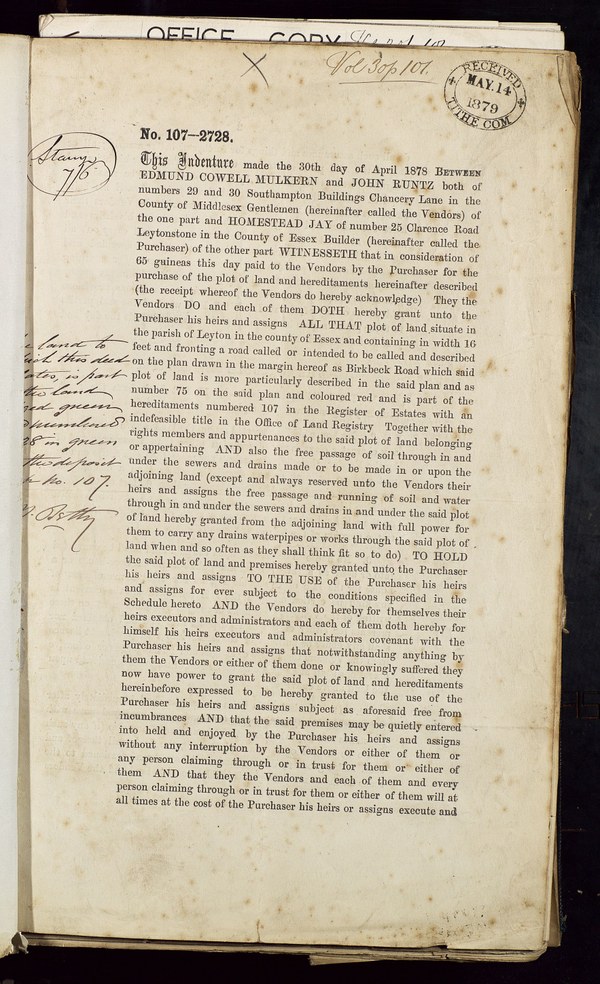 OFFICE COPY
Vol 3 op 101.
RECEIVED
MAY. 14
1879
TITHE COM
Stamp
7/6
No. 107—2728.
This Indenture made the 30th day of April 1878 BETWEEN
EDMUND COWELL MULKERN and JOHN RUNTZ both of
numbers 29 and 30 Southampton Buildings Chancery Lane in the
County of Middlesex Gentlemen (hereinafter called the Vendors) of
the one part and HOMESTEAD JAY of number 25 Clarence Road
Leytonstone in the County of Essex Builder (hereinafter called the
Purchaser) of the other part WITNESSETH that in consideration of
65 guineas this day paid to the Vendors by the Purchaser for the
purchase of the plot of land and hereditaments hereinafter described
(the receipt whereof the Vendors do hereby acknowledge) They the
Vendors DO and each of them DOTH hereby grant unto the
Purchaser his heirs and assigns ALL THAT plot of land situate in
the parish of Leyton in the county of Essex and containing in width 16
feet and fronting a road called or intended to be called and described
on the plan drawn in the margin hereof as Birkbeck Road which said
plot of land is more particularly described in the said plan and as
number 75 on the said plan and coloured red and is part of the
hereditaments numbered 107 in the Register of Estates with an
indefeasible title in the Office of Land Registry Together with the
rights members and appurtenances to the said plot of land belonging
or appertaining AND also the free passage of soil through in and
under the sewers and drains made or to be made in or upon the
adjoining land (except and always reserved unto the Vendors their
heirs and assigns the free passage and running of soil and water
through in and under the sewers and drains in and under the said plot
of land hereby granted from the adjoining land with full power for
them to carry any drains waterpipes or works through the said plot of
land when and so often as they shall think fit so to do) TO HOLD
the said plot of land and premises hereby granted unto the Purchaser
his heirs and assigns TO THE USE of the Purchaser his heirs
and assigns for ever subject to the conditions specified in the
Schedule hereto AND the Vendors do hereby for themselves their
heirs executors and administrators and each of them doth hereby for
himself his heirs executors and administrators covenant with the
Purchaser his heirs and assigns that notwithstanding anything by
them the Vendors or either of them done or knowingly suffered they
now have power to grant the said plot of land and hereditaments
hereinbefore expressed to be hereby granted to the use of the
Purchaser his heirs and assigns subject as aforesaid free from
incumbrances AND that the said premises may be quietly entered
into held and enjoyed by the Purchaser his heirs and assigns
without any interruption by the Vendors or either of them or
any person claiming through or in trust for them or either of
them AND that they the Vendors and each of them and every
person claiming through or in trust for them or either of them will at
all times at the cost of the Purchaser his heirs or assigns execute and
land to
this deed
is part
land
green
numbered
28 in green
the deposit
No. 107.
Betty